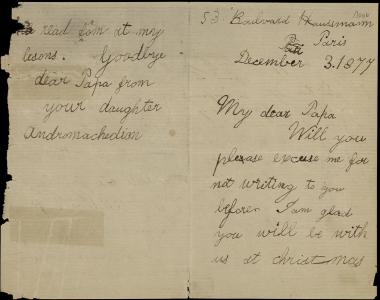 53 Boulvard Hausmann
Paris
December 3. 1877
My dear Papa
Will you
please excuse me for
not writing to you
before. I am glad
you will be with
us at christmas
read to him at my
lesons. Goodbye
dear Papa from
your daughter
Andromachedion